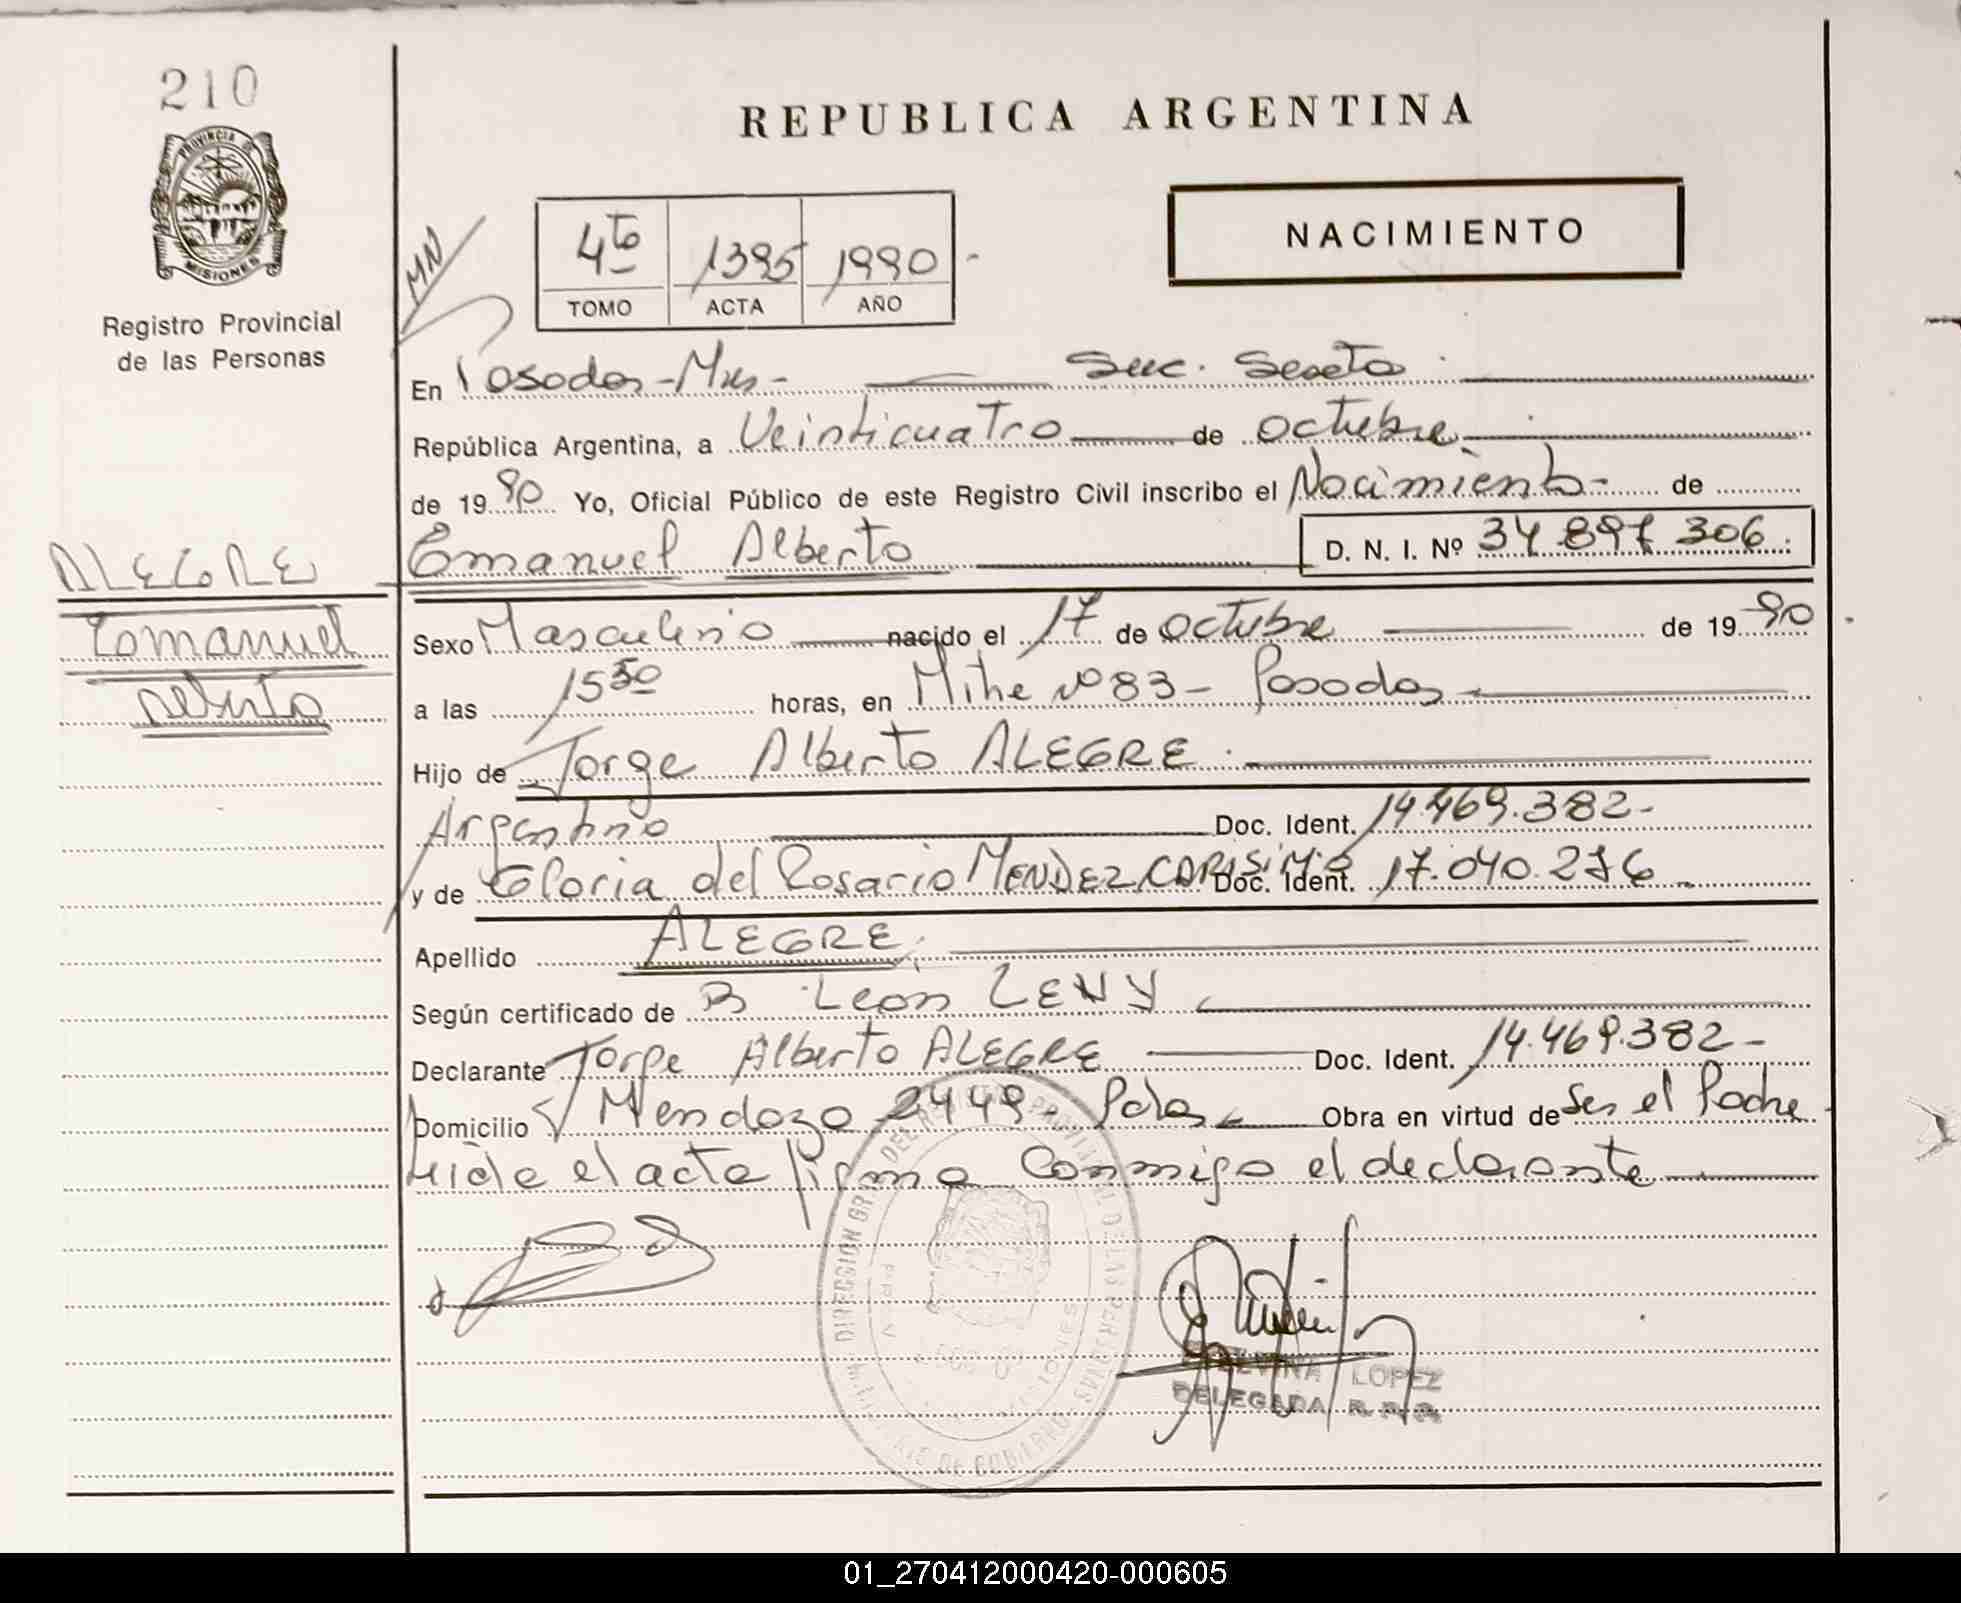 210
PROVINCIA DE
MISIONES
Registro Provincial
de las Personas
REPUBLICA ARGENTINA
NACIMIENTO
MN
4to 1395 1990
TOMO ACTA AÑO
En Posadas - Mnes - Suc. Sexta
República Argentina, a Veinticuatro de octubre
de 1990 Yo, Oficial Público de este Registro Civil inscribo el Nacimiento - de
Emanuel Alberto D. N. I. Nº 34.897.306
ALEGRE
Emanuel
Alberto
Sexo Masculino nacido el 17 de octubre de 1990
a las 15 30 horas, en Mitre Nº 83 - Posadas
Hijo de Jorge Alberto ALEGRE
Argentino Doc. Ident. 14.469.382 -
y de Gloria del Rosario MENDEZ CARISIMO Doc. Ident. 17.040.276
Apellido ALEGRE
Según certificado de B León LEVY
Declarante Jorge Alberto ALEGRE Doc. Ident. 14.469.382 -
Domicilio Mendoza 2449 - Pdas Obra en virtud de Ser el Padre
Leida el acta firma Conmigo el declarante
DIRECCION GRAL. DEL REGISTRO PROVINCIAL DE LAS PERSONAS
DE GOBIERNO
MISIONES
LOPEZ
DELEGADA R. P. P.
01_270412000420-000605